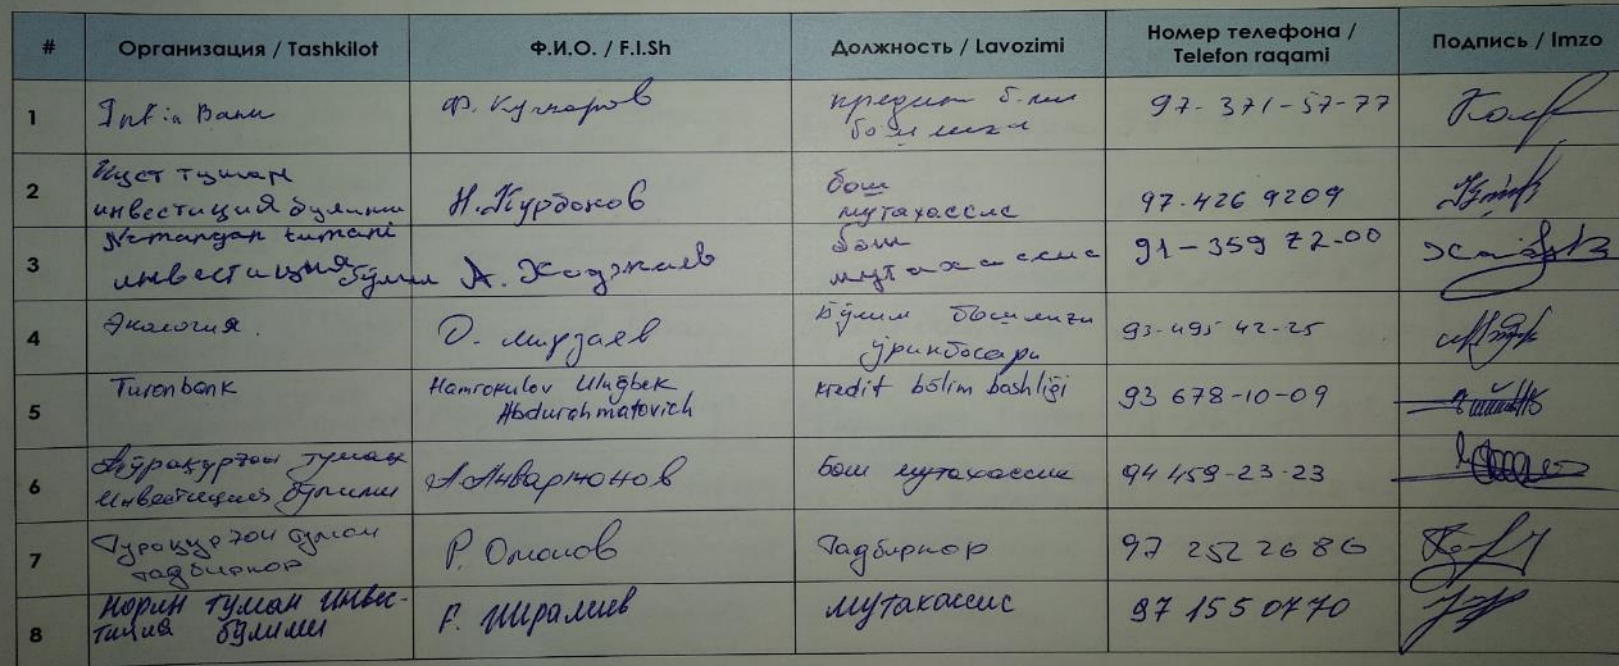 # Организация / Tashkilot Ф.И.О. / F.I.Sh Должность / Lavozimi Номер телефона / Telefon raqami Подпись / Imzo
1 Ф. Кучкаров кредит 97-371-57-77
2 туман инвестиция булими Н. Курбонов бош мутахассис 97-426 9209
3 Namangan tumani инвестиция бўлим А. Ходжаев бош мутахассис 91-359 72-00
4 Экология. О. мирзаев бўлим бошлиғи ўринбосари 93-495 42-25
5 Turonbank Hamrokulov Ulug̃bek Abdurahmatovich kredit bõlim bashlig̃i 93 678-10-09
6 туман инвестиция бўлими А Анваржонов Бош мутахассис 94 459-23-23
7 туман тадбиркор Р. Омонов Тадбиркор 97 252 26 86
8 Норин туман инвес-тиция бўлими F. Шералиев мутахассис 97 155 0770